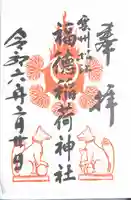 奉拝
雲州松江
福徳稲荷神社
令和六年二月廿日